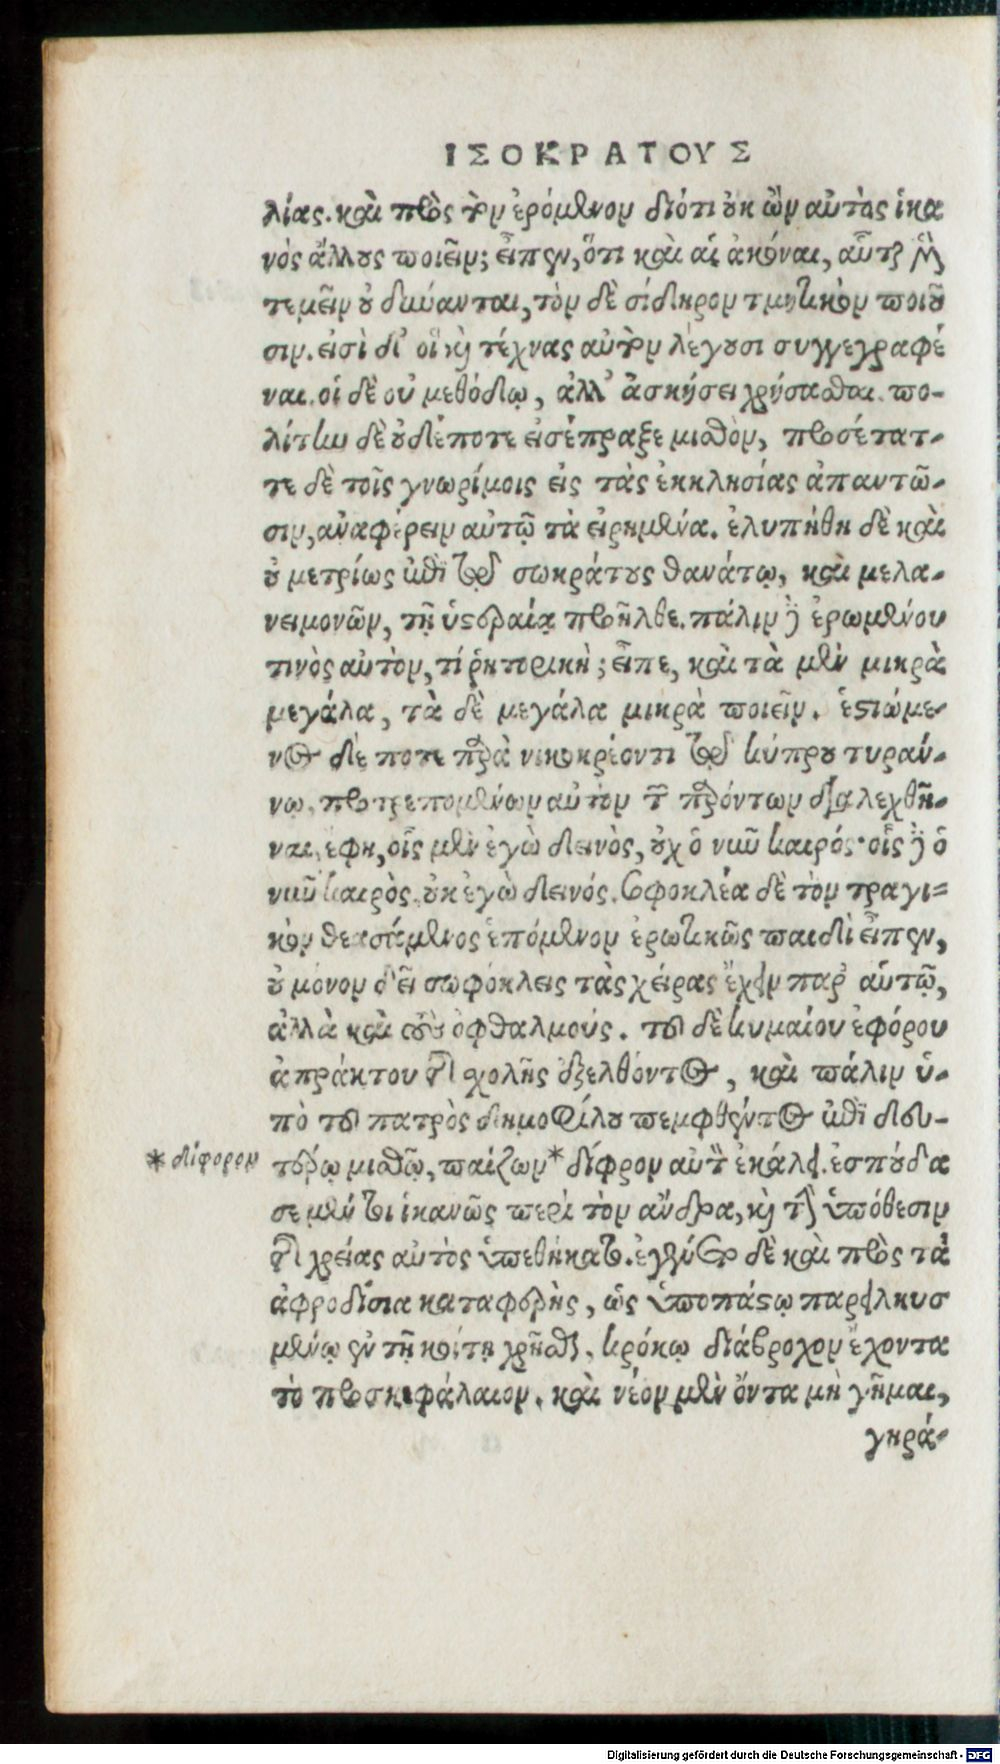 ΙΣΟΚΡΑΤΟΥΣ
λίας. καὶ πρὸς τὸν ἐρόμενον διότι οὐκ ὢν αὐτὸς ἱκα
νὸς ἄλλους ποιεῖν; εἶπεν, ὅτι καὶ αἱ ἀκόναι, αὗται μὲν
τεμεῖν οὐ δύνανται, τὸν δὲ σίδηρον τμητικὸν ποιοῦ
σιν. εἰσὶ δ' οἳ καὶ τέχνας αὐτὸν λέγουσι συγγεγραφέ
ναι. οἱ δὲ οὐ μεθόδῳ, ἀλλ' ἀσκήσει χρήσασθαι. πο-
λίτην δὲ οὐδέποτε εἰσέπραξε μισθὸν, προσέτατ-
τε δὲ τοῖς γνωρίμοις εἰς τὰς ἐκκλησίας ἀπαντῶ-
σιν, ἀναφέρειν αὐτῷ τὰ εἰρημένα. ἐλυπήθη δὲ καὶ
οὐ μετρίως ἐπὶ τῷ σωκράτους θανάτῳ, καὶ μελα-
νειμονῶν, τῇ ὑστεραίᾳ προῆλθε. πάλιν δὲ ἐρωμένου
τινὸς αὐτὸν, τί ῥητορικὴ; εἶπε, καὶ τὰ μὲν μικρὰ
μεγάλα, τὰ δὲ μεγάλα μικρὰ ποιεῖν. ἑστιώμε-
νος δέ ποτε παρὰ νικοκρέοντι τῷ κύπρου τυράν-
νῳ, προτρεπομένων αὐτὸν τῶν παρόντων διαλεχθῆ-
ναι, ἔφη, οἷς μὲν ἐγὼ δεινὸς, οὐχ ὁ νῦν καιρός· οἷς δὲ ὁ
νῦν καιρὸς, οὐκ ἐγὼ δεινός. σοφοκλέα δὲ τὸν τραγι=
κὸν θεασάμενος ἑπόμενον ἐρωτικῶς παιδὶ εἶπεν,
οὐ μόνον δεῖ σωφόκλεις τὰς χεῖρας ἔχειν παρ' αὑτῷ,
ἀλλὰ καὶ τοὺς ὀφθαλμούς. τοῦ δὲ κυμαίου ἐφόρου
ἀπράκτου τῆς σχολῆς ἐξελθόντος, καὶ πάλιν ὑ-
πὸ τοῦ πατρὸς δημοφίλου πεμφθέντος ἐπὶ δευ-
* δίφορον
τέρῳ μισθῷ, παίζων* δίφρον αὐτὸν ἐκάλει. ἐσπούδα
σε μέντοι ἱκανῶς περὶ τὸν ἄνδρα, καὶ τὴν ὑπόθεσιν
τῆς χρείας αὐτὸς ὑπεθήκατο. ἐγένετο δὲ καὶ πρὸς τὰ
ἀφροδίσια καταφερὴς, ὡς ὑποπάστῳ παρειλκυσ
μένῳ ἐν τῇ κοίτῃ χρῆσθαι, κρόκῳ διάβροχον ἔχοντα
τὸ προσκεφάλαιον. καὶ νέον μὲν ὄντα μὴ γῆμαι,
γηρά-
Digitalisierung gefördert durch die Deutsche Forschungsgemeinschaft - DFG